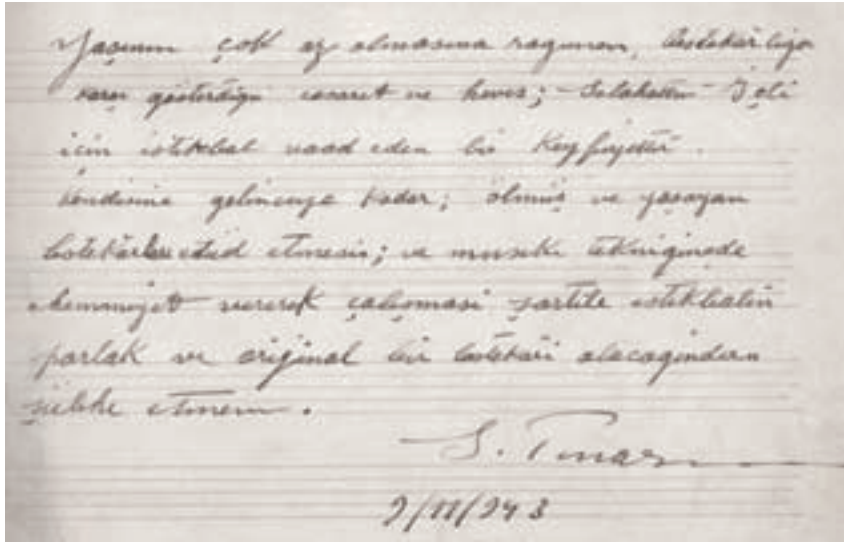 Yaşının çok az olmasına rağmen, bestekârlığa
karşı gösterdiği cesaret ve heves; Selahattin İçli
için istikbal vaad eden bir keyfiyettir.
Kendisine gelinceye kadar; ölmüş ve yaşayan
bestekârları etüd etmesi; ve musiki tekniğinede
ehemmiyet vererek çalışması şartile istikbalin
parlak ve orijinal bir bestekârı olacağından
şüphe etmem.
S. Pınar
9/11/943